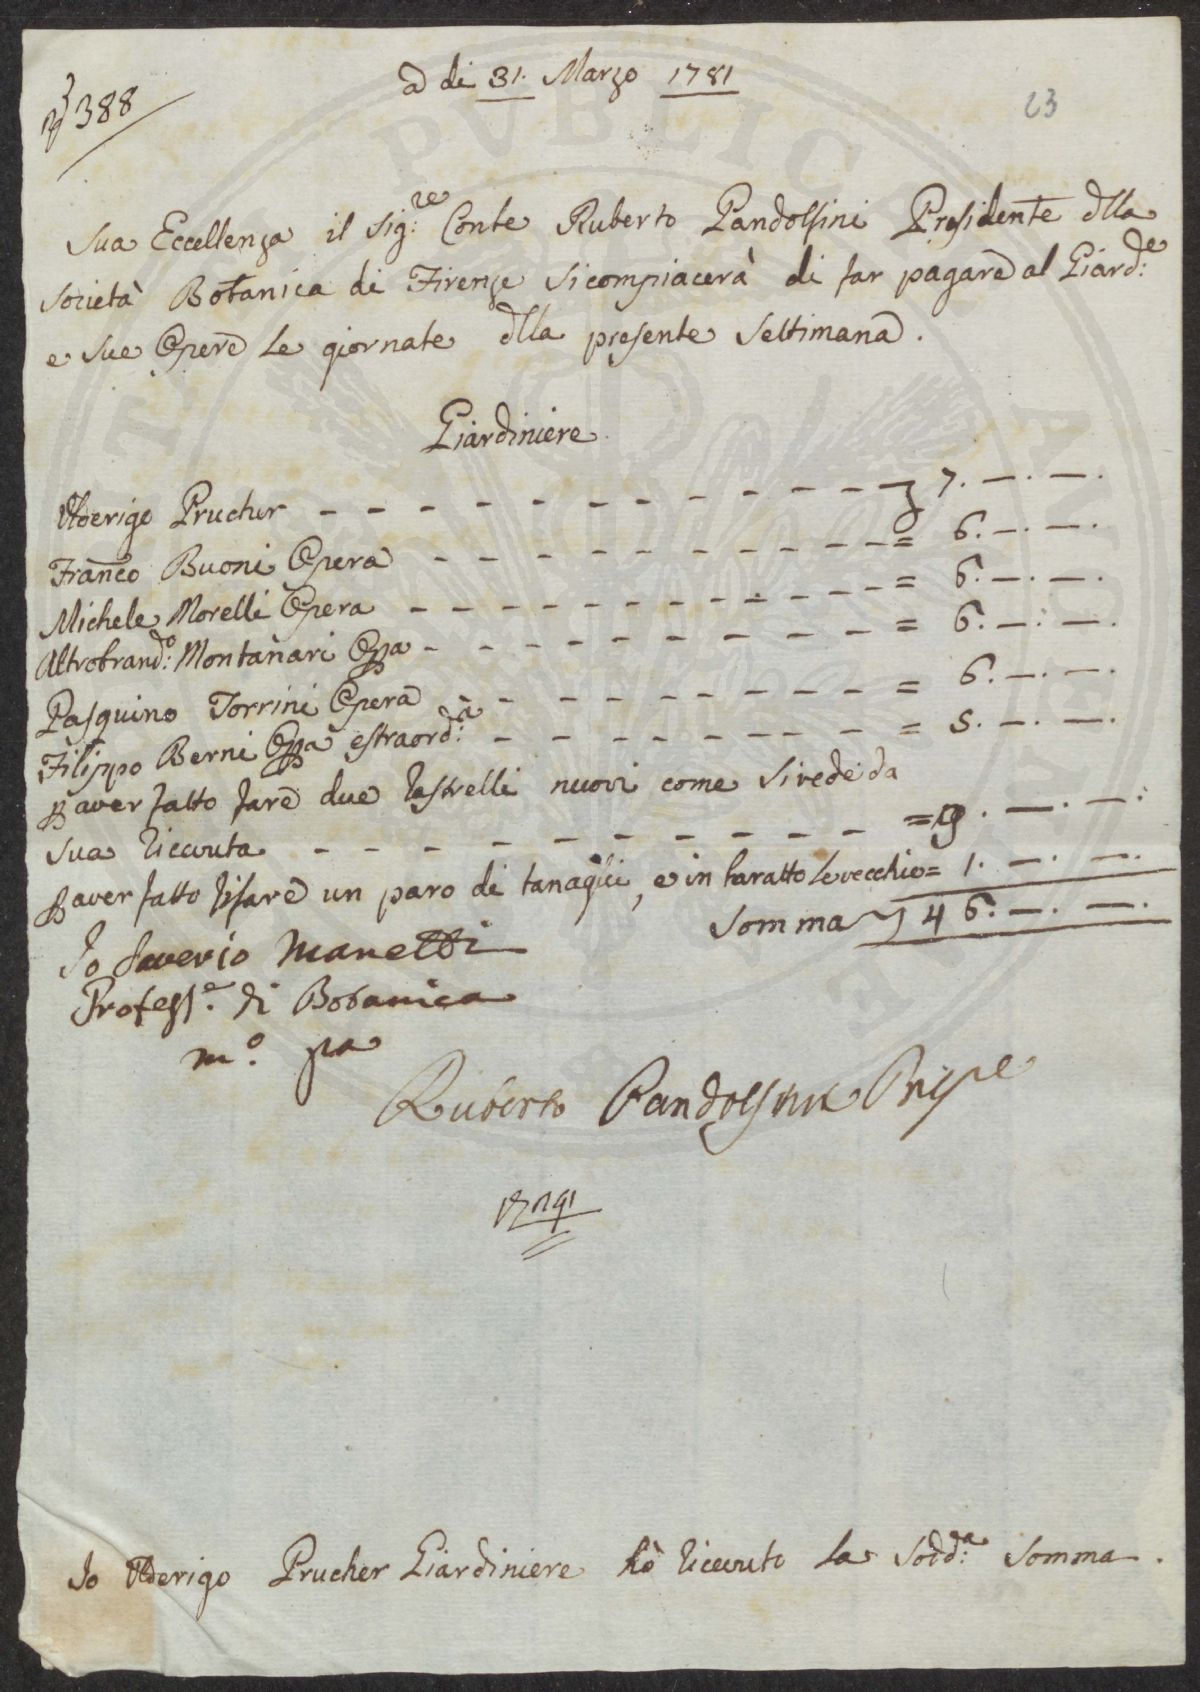 a di 31. Marzo 1781
388
23
Sua Eccellenza il Sig:re Conte Ruberto Pandolfini Presidente dlla
Società Botanica di Firenze si compiacerà di far pagare al Giard:e
e sue Opere le giornate dlla presente Settimana.
Giardiniere
Ulderigo Prucher - - - - - - - - - - - 7. —. —.
Franco Buoni Opera - - - - - - - - - = 6. —. —.
Michele Morelli Opera - - - - - - - - - = 6. —. —.
Altrobrand:o Montanari Opa - - - - - - - - - = 6. —. —.
Pasquino Torrini Opera - - - - - - - - - = 6. —. —.
Filippo Berni Opa estraord:a - - - - - - - - = 5. —. —.
p aver fatto fare due rastrelli nuovi come si vede da
sua ricevuta - - - - - - - - - = . —. —.
p aver fatto rifare un paro di tanaglie, e in baratto le vecchie = 1. —. —.
Somma 46. —. —.
Io Saverio Manetti
Profess:e di Botanica
m:o pa
Ruberto Pandolfini
Io Ulderigo Prucher Giardiniere hò ricevuto la Sodd:a Somma.